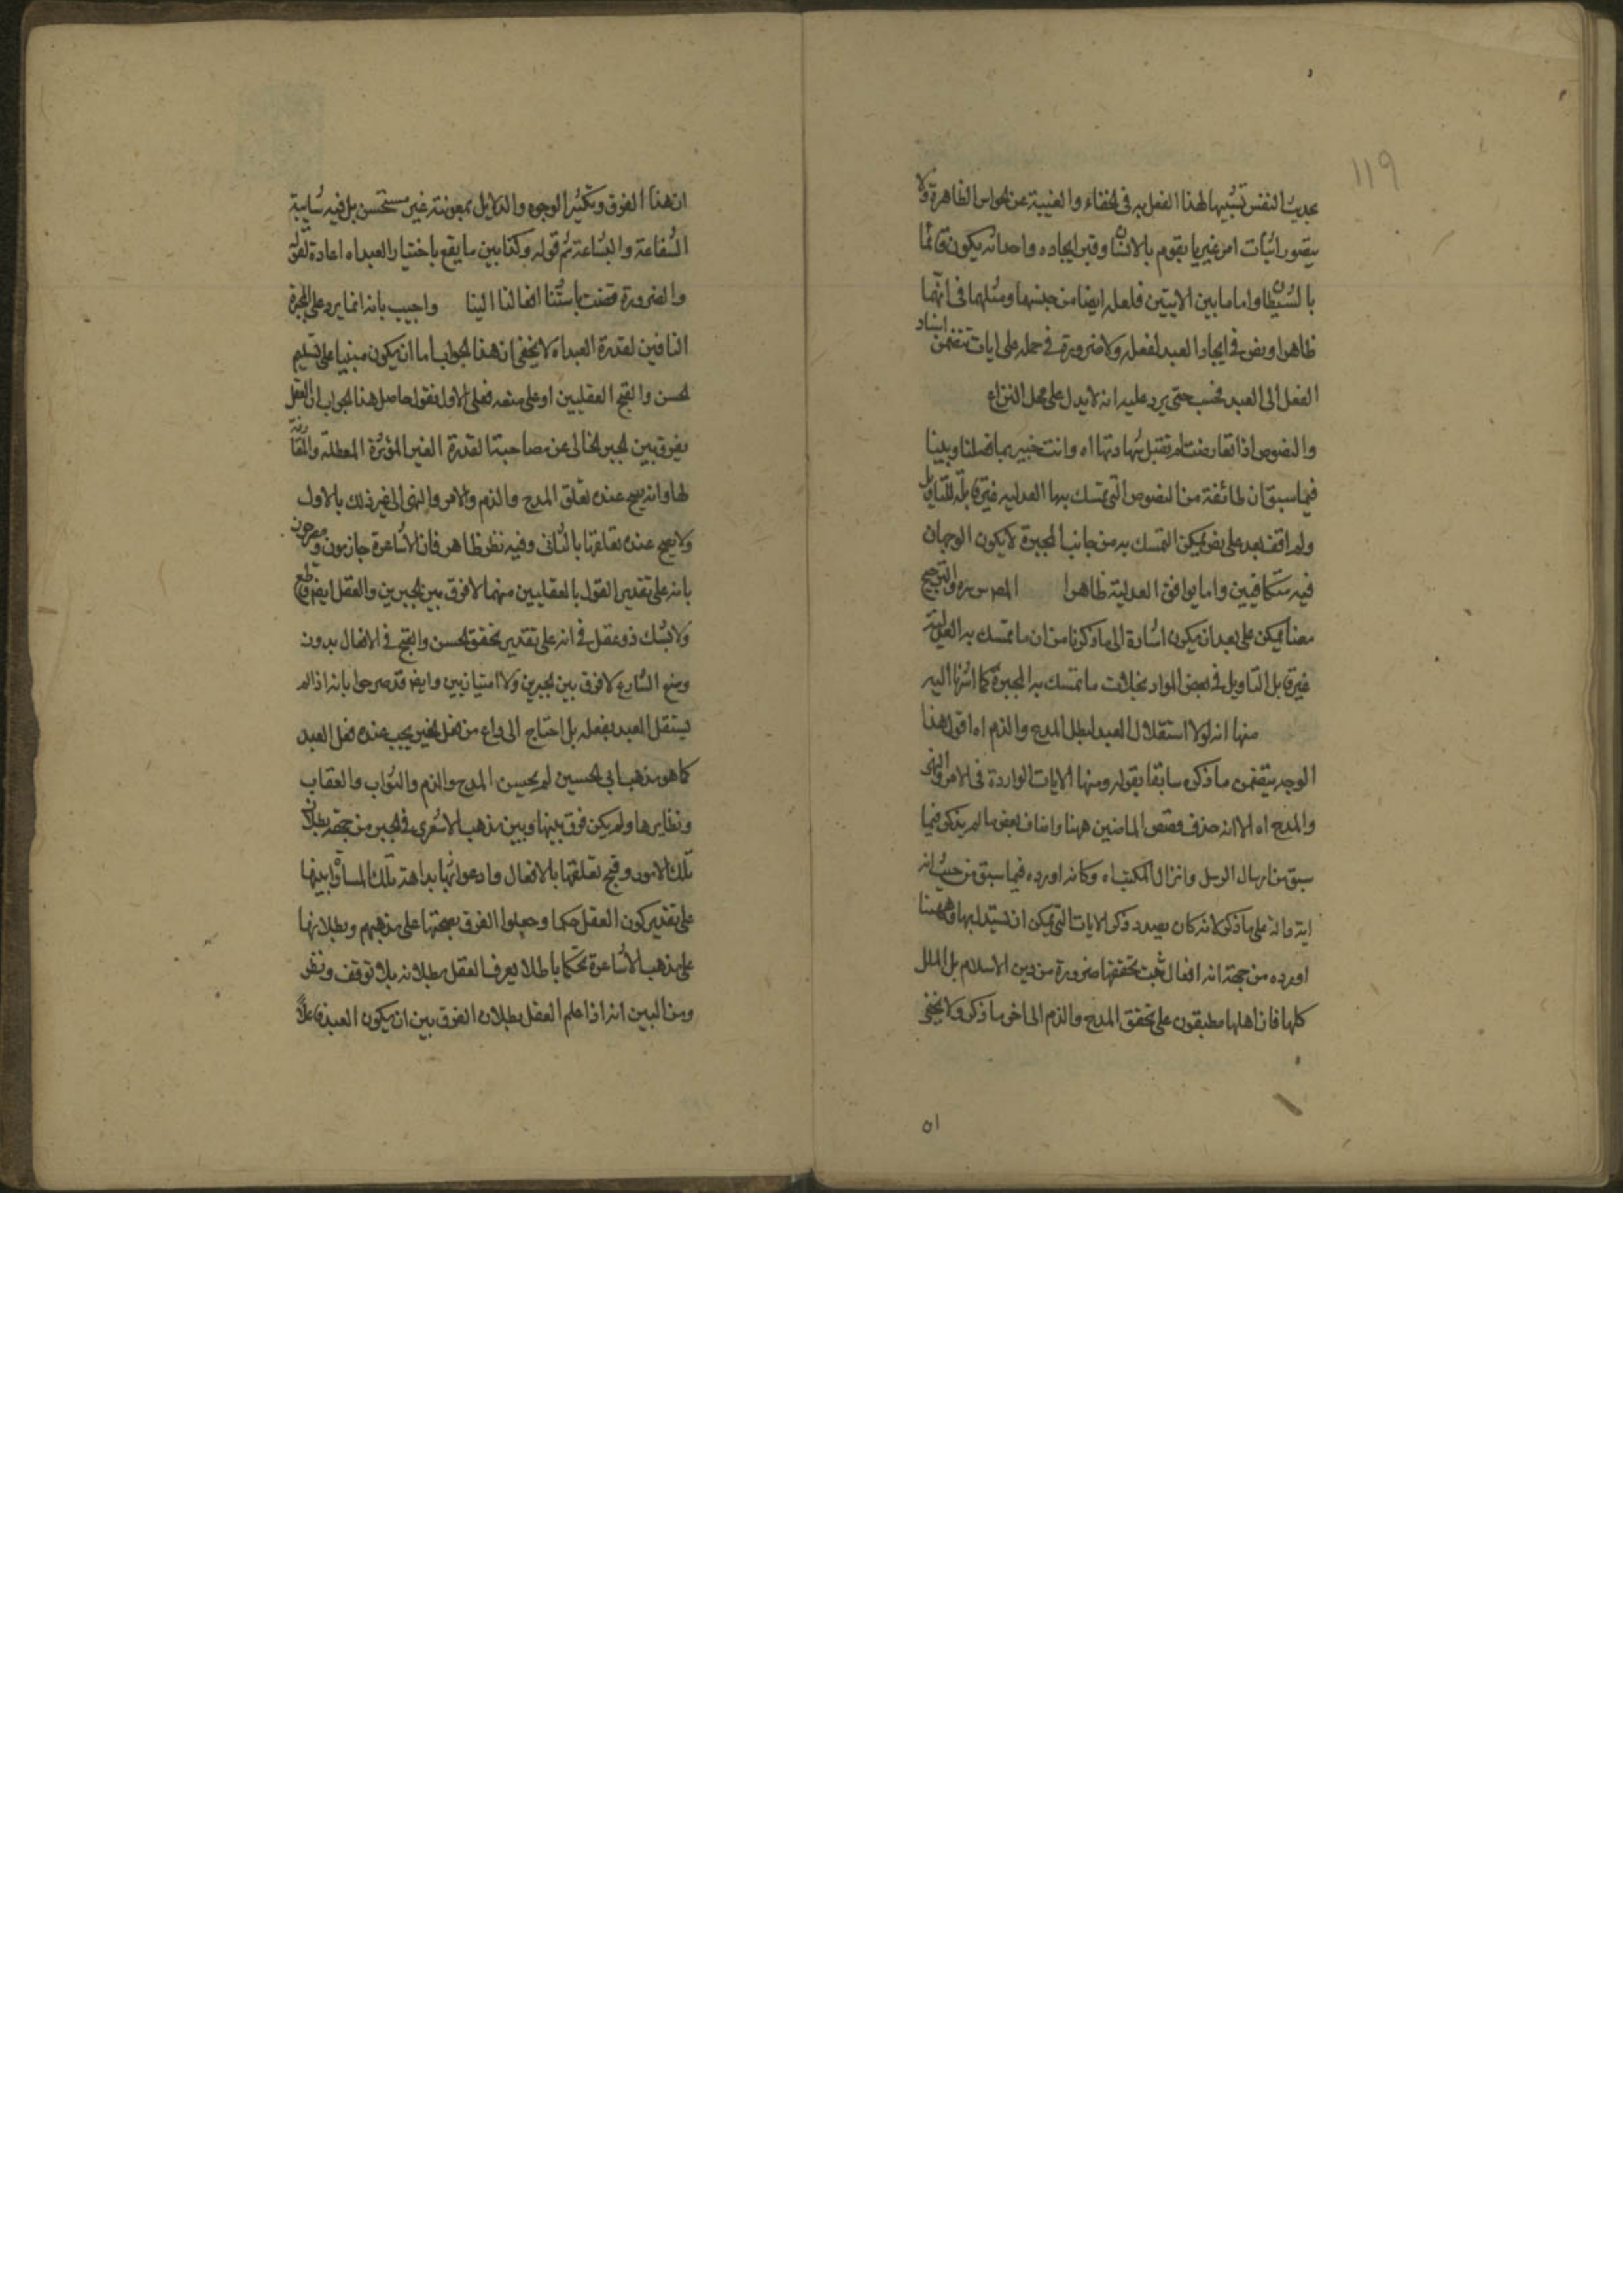 ١١٩
بحديث النفس تشبيها لهذا الفعل به في الخفاء والغيبة عن الحواس الظاهرة ولا
يتصور اثبات امر غير ما يقوم بالانسان وقبل ايجاده واحداثه يكون قائما
بالشيطان واما ما بين الاثنين فلعله ايضا من جنسها ومثلها في انهما
ظاهرا ونص في ايجاد العبد لفعله ولا ضرورة في حمله على ايات تتضمن اسناد
الفعل الى العبد فحسب حتى يرد عليه انه لا يدل على محل النزاع
والنصوص اذا تعارضت لم تقبل شهادتها اه وانت خبير بما فصلنا وبينا
فيما سبق ان طائفة من النصوص التي تمسك بها العدلية غير قابلة للتاويل
ولم اقف بعد على نص يمكن التمسك به من جانب المجبرة لا يكون الوجهان
فيه متكافيين واما يوافق العدلية ظاهرا والترجيح
معنا يمكن على بعد ان يكون اشارة الى ما ذكرنا من ان ما تمسك به العدلية
غير قابل التاويل في بعض المواد بخلاف ما تمسك به المجبرة كما اشرنا اليه
منها انه لولا استقلال العبد لبطل المدح والذم اه اقول هذا
الوجه يتضمن ما ذكره سابقا بقوله ومنها الايات الواردة في الامر والنهى
والمدح اه الا انه حذف قصص الماضين ههنا واضاف بعض ما لم يذكر فيما
سبق من ارسال الرسل وانزال الكتب اه وكانه اورده فيما سبق من حيث انه
اية دالة على ما ذكر لانه كان بصدد ذكر الايات التي يمكن ان يستدل بها وههنا
اورده من جهة انه افعال ثبت تحققها ضرورة من دين الاسلام بل الملل
كلها فان اهلها مطبقون على تحقق المدح والذم الى اخر ما ذكر ولا يخفى
ان
ان هذا الفرق وتكثير الوجوه والدلايل بمعونته غير مستحسن بل فيه شايبة
الشفاعة والبشاعة ثم قوله وكذا بين ما يقع باختيار العبد اه اعادة لقوله
والضرورة قضت باستناد افعالنا الينا واجيب بانه انما يرد على المجبرة
النافين لقدرة العبد اه لا يخفى ان هذا الجواب اما ان يكون مبنيا على تسليم
الحسن والقبح العقليين او على منعه فعلى الاول نقول حاصل هذا الجواب ان العقل
يفرق بين الجبر الخالى عن مصاحبة القدرة الغير المؤثرة المعطلة والمقارنة
لها وانه يصح عنده تعلق المدح والذم والامر والنهى الى غير ذلك بالاول
ولا يصح عنده تعلقها بالثانى وفيه نظر ظاهر فان الاشاعرة جازمون ومصرحون
بانه على تقدير القول بالعقليين منهما لا فرق بين الجبرين والعقل ايضا قاطع
ولا يشك ذو عقل في انه على تقدير تحقق الحسن والقبح في الافعال بدون
وضع الشارع لا فرق بين الجبرين ولا امتياز بين وايضا قد صرحوا بانه اذا لم
يستقل العبد بفعله بل احتاج الى داع من فعل الغير يجب عنده فعل العبد
كما هو مذهب ابي الحسين لم يحسن المدح والذم والثواب والعقاب
ونظايرها ولم يكن فرق بينها وبين مذهب الاشعرى في الجبر من جهة بطلان
تلك الامور وقبح تعلقها بالافعال وادعوا ثمة بداهة تلك المساواة بينها
على تقدير كون العقل حكما وجعلوا الفرق بصحتها على مذهبهم وبطلانها
على مذهب الاشاعرة تحكما باطلا يعرف العقل بطلانه بلا توقف ونظر
ومن البين انه اذا علم العقل بطلان الفرق بين ان يكون العبد فاعلا